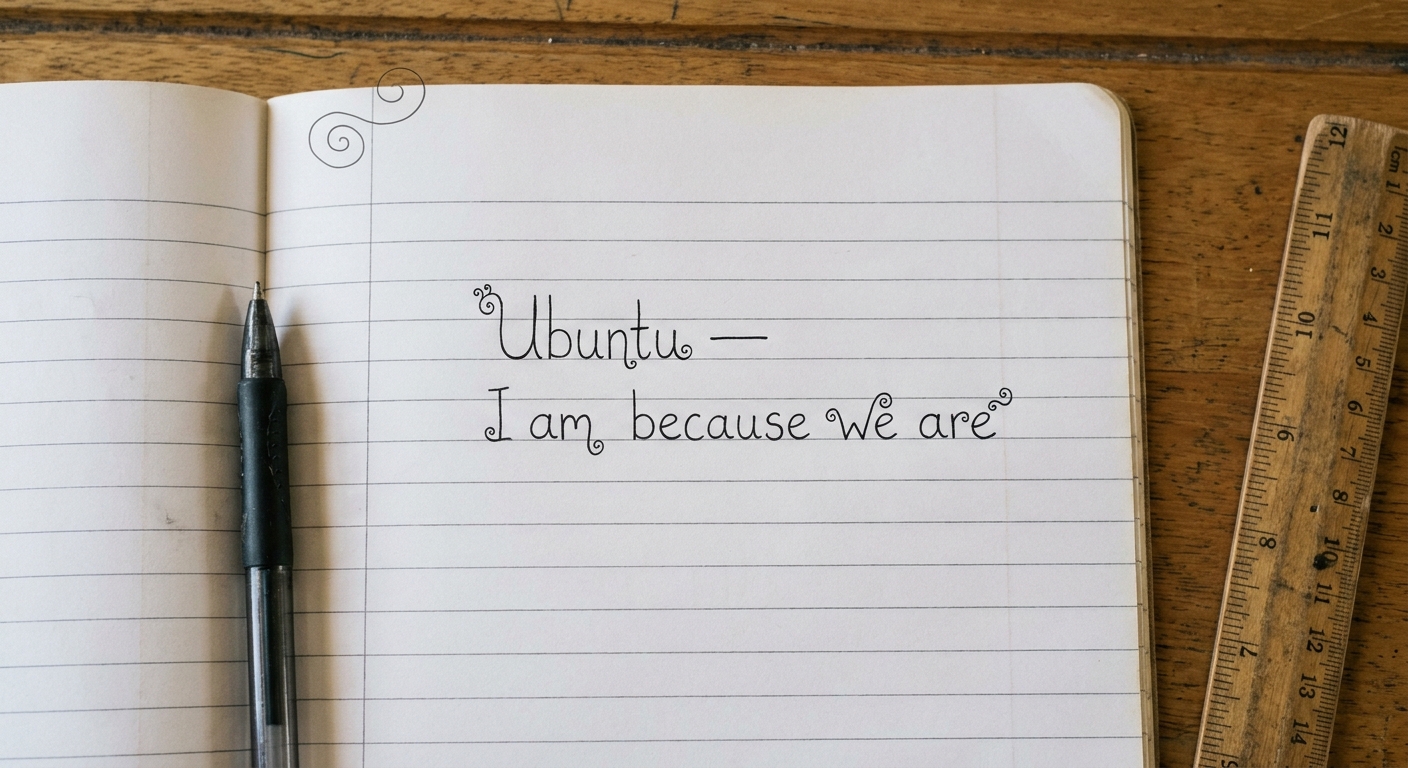 Ubuntu —
I am because we are
12
11
10
9
8
7
1cm 1
2
3
4
5
6
7
8
10
11
12
13
14